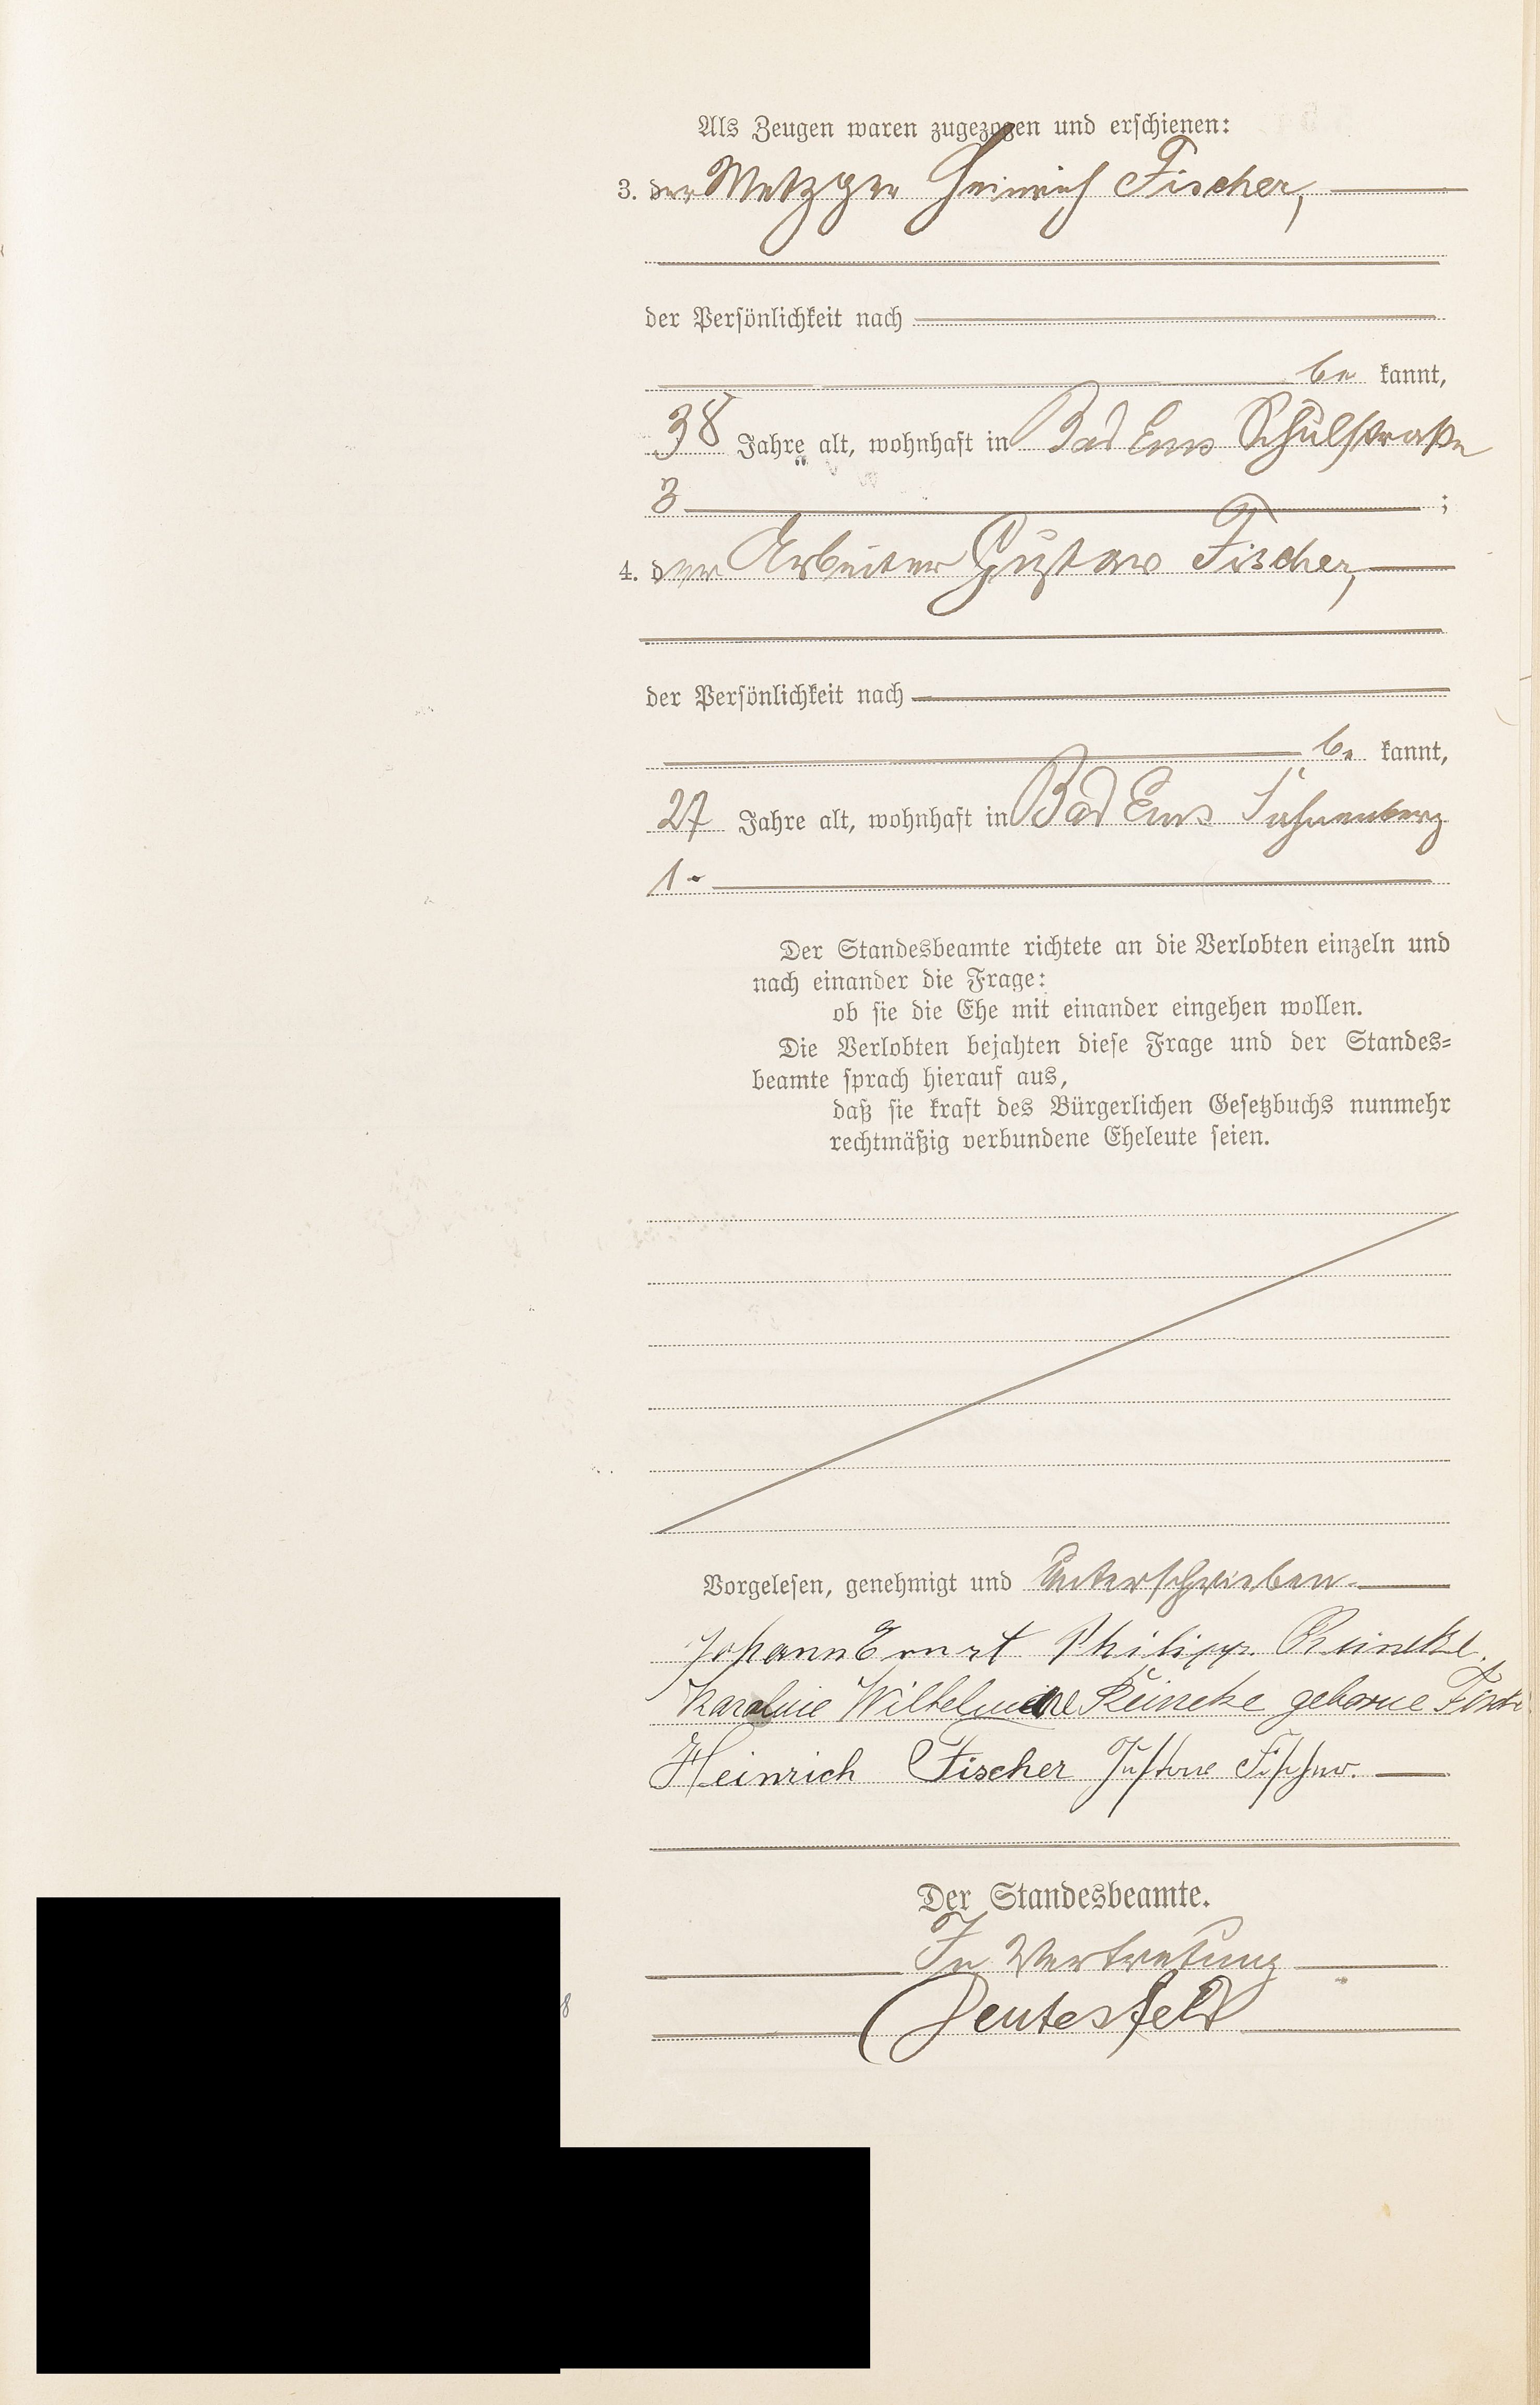 Als Zeugen waren zugezogen und erschienen:
3. der Metzger Heinrich Fischer,
der Persönlichkeit nach
be kannt,
38 Jahre alt, wohnhaft in Bad Ems Schulstraße
3 ;
4. der Arbeiter Gustav Fischer,
der Persönlichkeit nach
be kannt,
27 Jahre alt, wohnhaft in Bad Ems
1.
Der Standesbeamte richtete an die Verlobten einzeln und
nach einander die Frage:
ob sie die Ehe mit einander eingehen wollen.
Die Verlobten bejahten diese Frage und der Standes=
beamte sprach hierauf aus,
daß sie kraft des Bürgerlichen Gesetzbuchs nunmehr
rechtmäßig verbundene Eheleute seien.
Vorgelesen, genehmigt und Unterschrieben.
Johann Ernst Philipp Reineke.
Karoline Wilhelmine Reineke geborne
Heinrich Fischer Gustav Fischer.
Der Standesbeamte.
In Vertretung
8